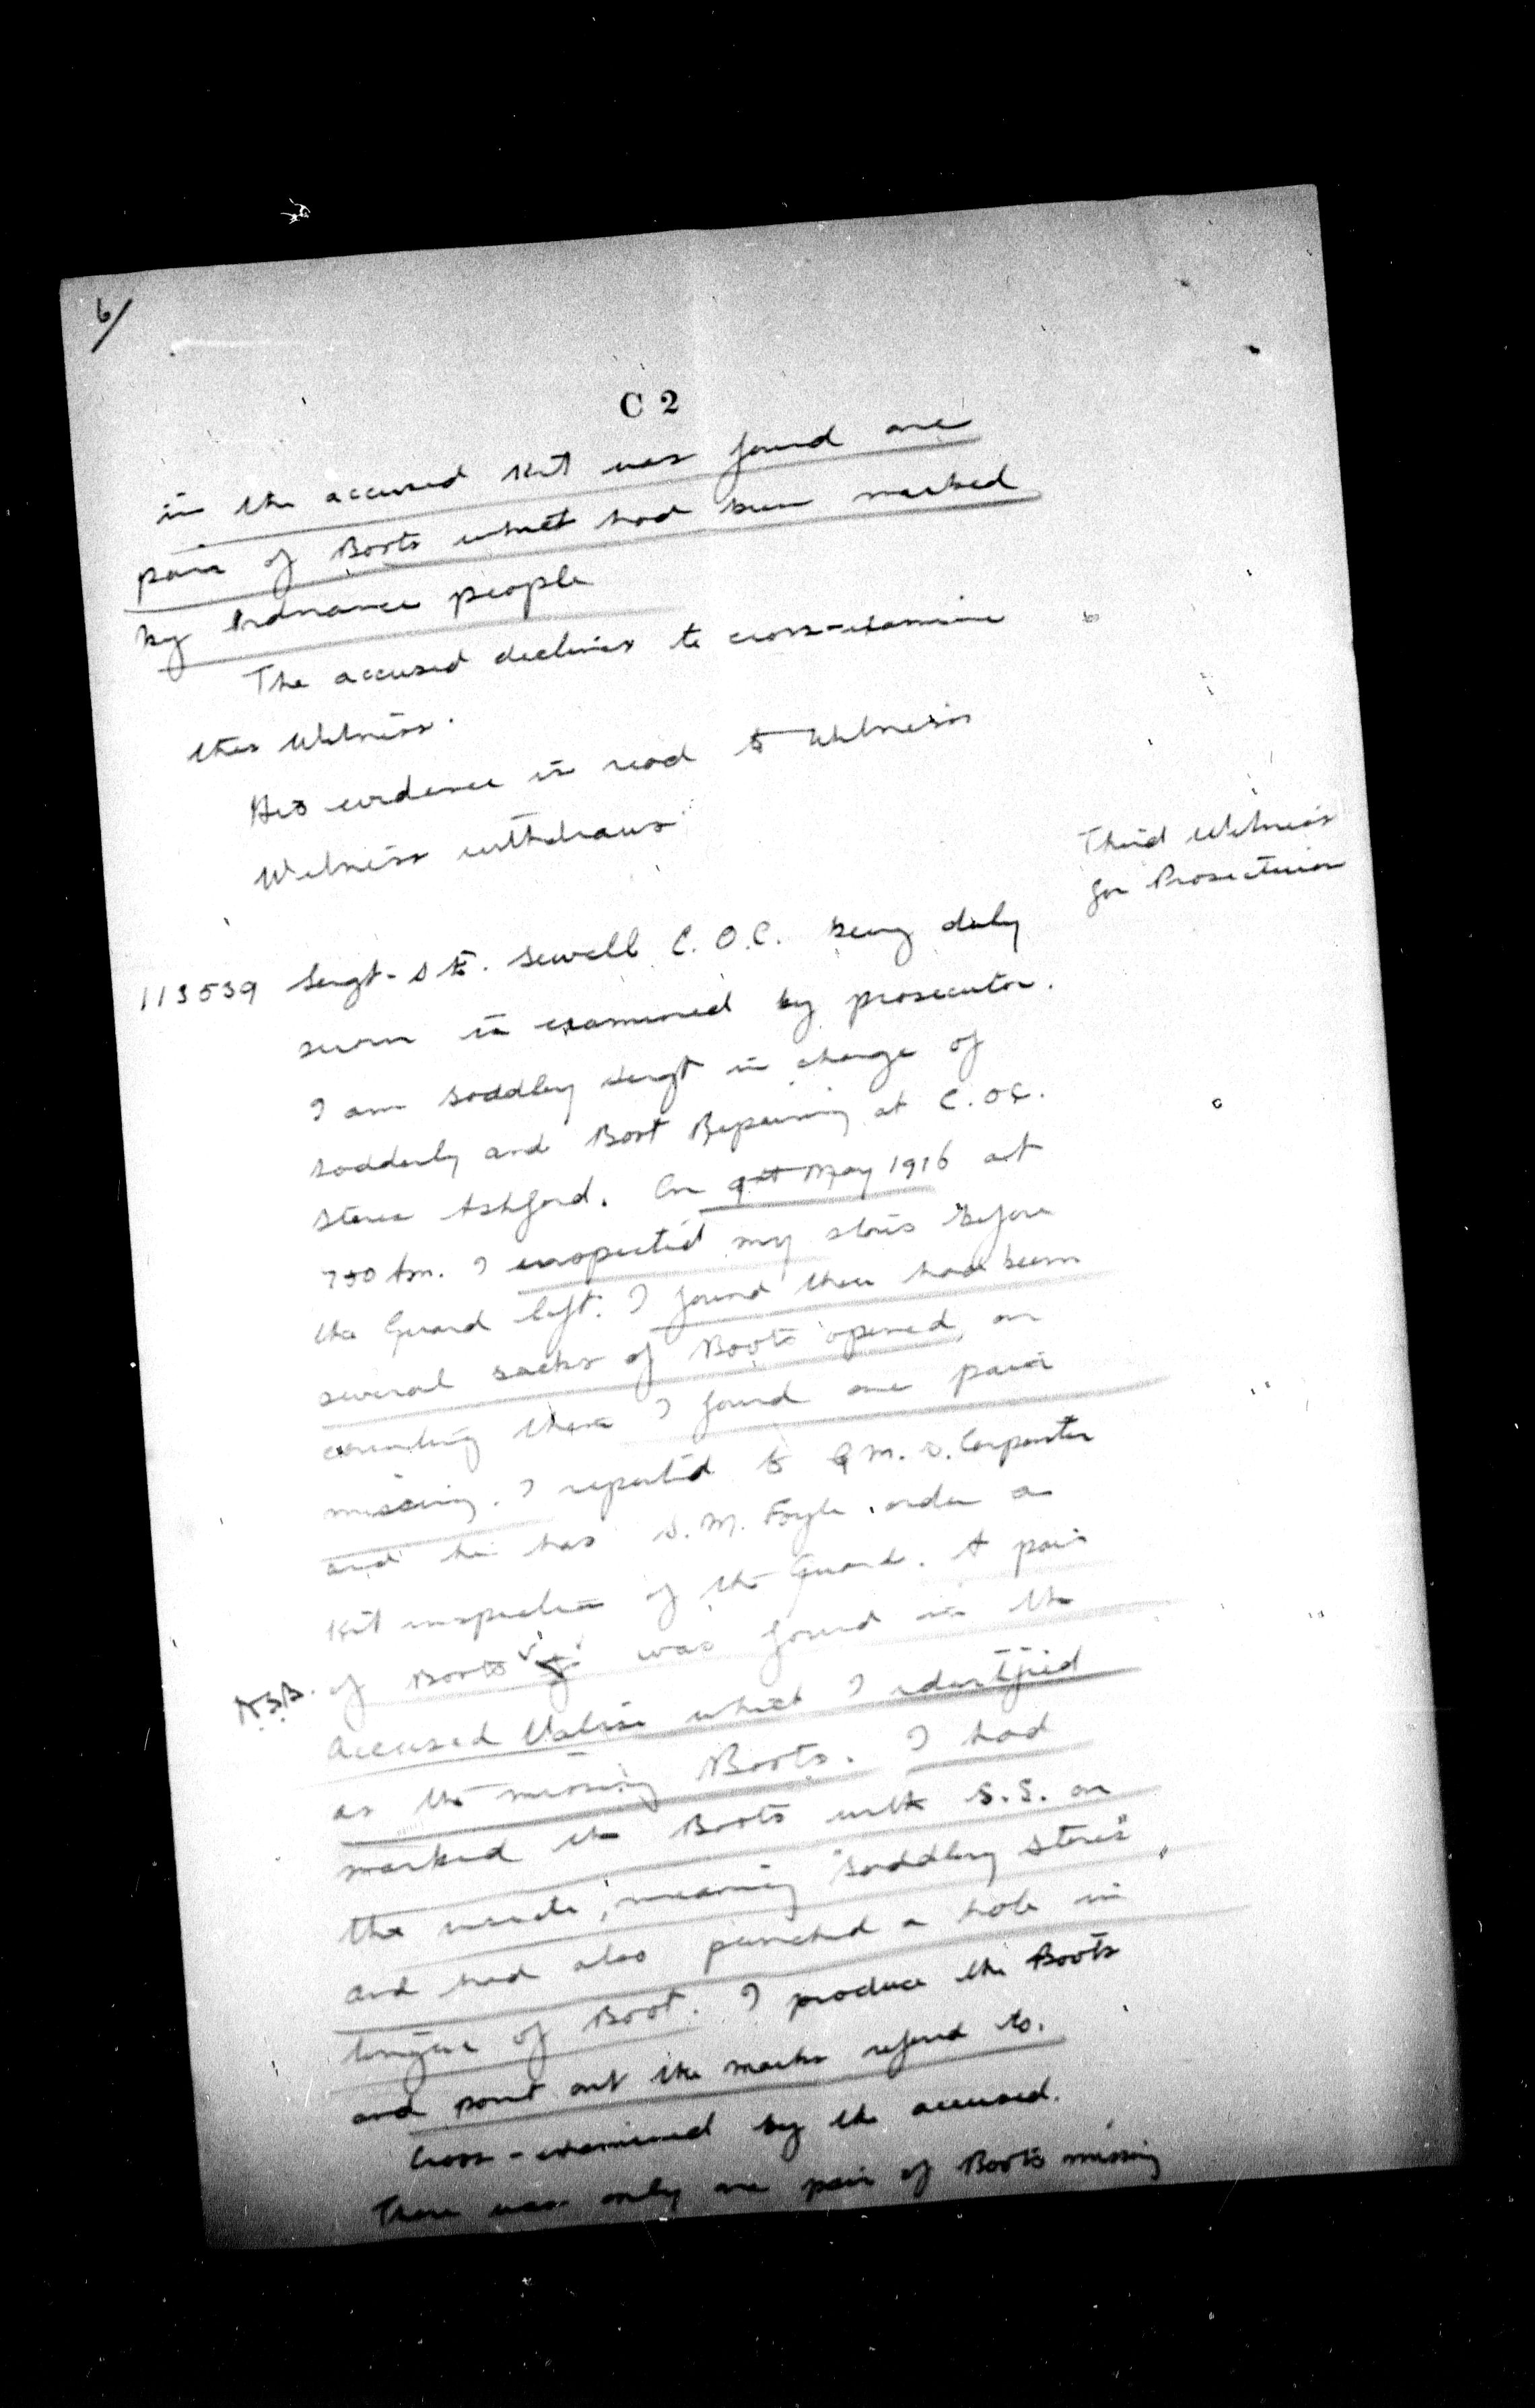 6/
C 2
in the accused Kit was found one
pair of Boots which had been marked
by Ordnance people
The accused declines to cross-examine
this Witness.
His evidence is read to Witness
Witness withdraws
Third Witness
for Prosecution
113539 Sergt. S E. Sewell C.O.C. being duly
sworn is examined by prosecutor.
I am Saddley Sergt in charge of
Sadderly and Boot Repairing at C.O.C.
Stores Ashford. On 9th May 1916 at
730 Am. I inspected my stores before
the Guard left. I found there had been
several sacks of Boots opened, on
counting them I found one pair
missing. I reported to Q M. S. Carpenter
and he has S. M. Foyle order a
Kit inspection of the Guard. A pair
N.B.B. of Boots was found in the
Accused Valise which I identified
as the missing Boots. I had
marked the Boots with S.S. on
the inside, meaning "Saddley Stores"
and had also punched a hole in
tongue of Boot. I produce the Boots
and point out the marks referd to.
Cross-examined by the accused.
There was only one pair of Boots missing